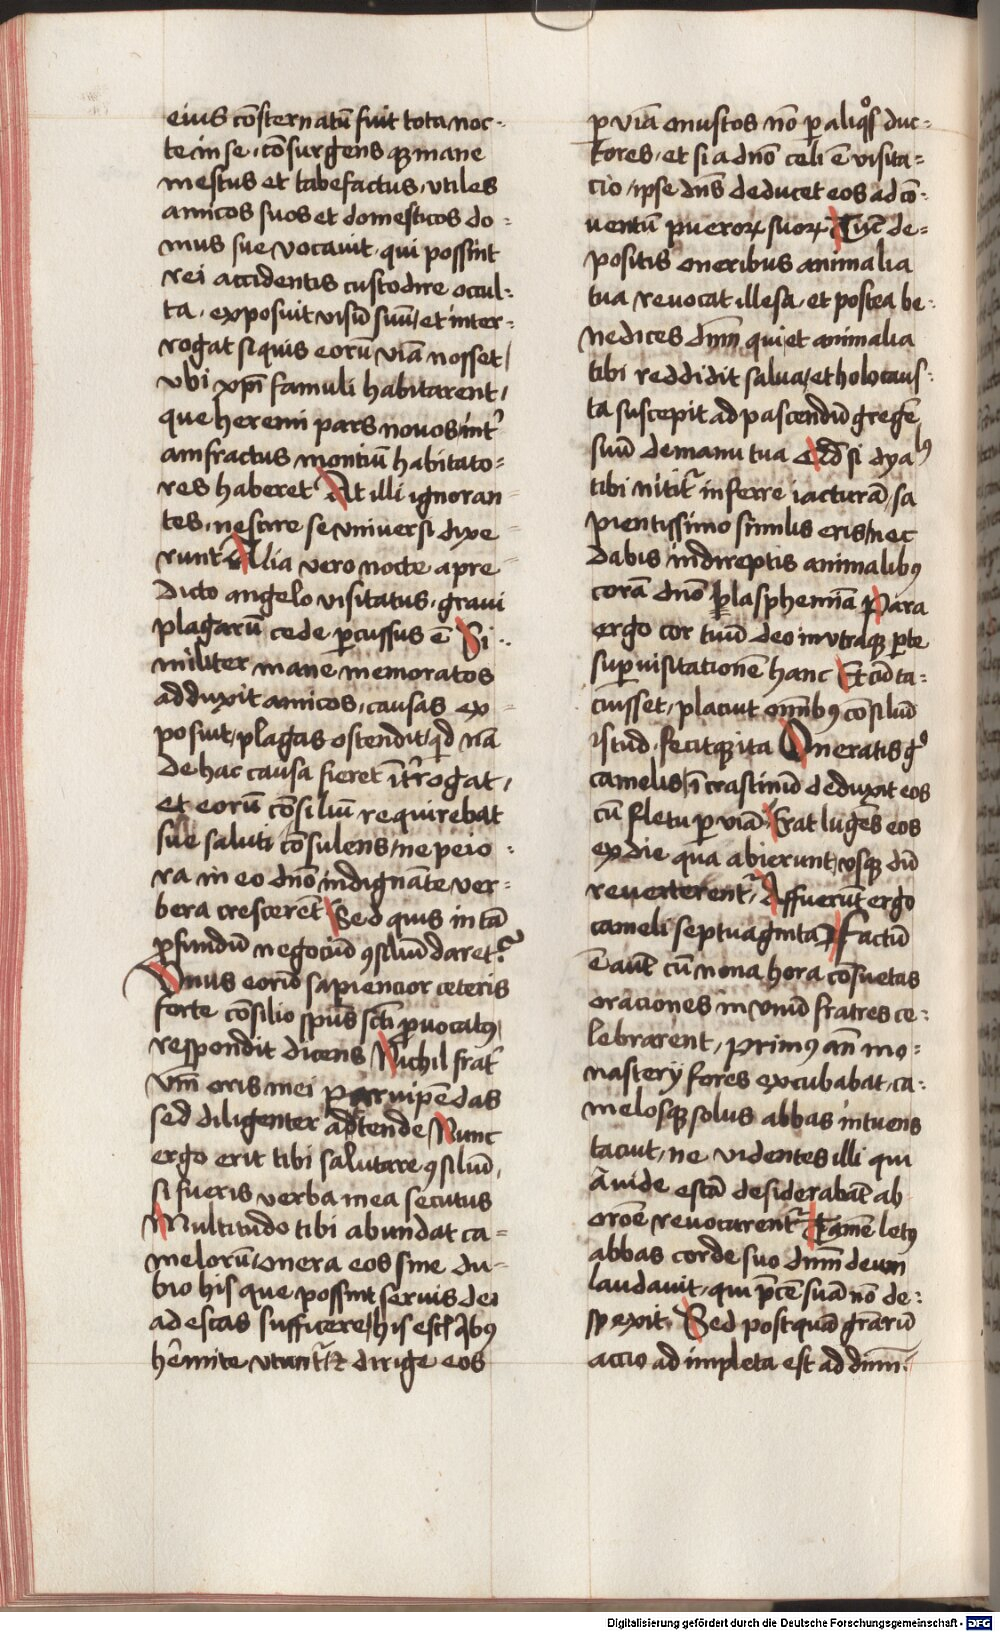 eius cōsternatū fuit tota noc-
te in se, cōsurgens qꝫ mane
mestus et tabefactus, vtiles
amicos suos et domesticos do-
mus sue vocauit, qui possint
rei accidentis custodire occul-
ta, exposuit visū suū, et inter-
rogat si quis eorū viā nosset,
vbi xp̄i famuli habitarent,
que heremi pars nouos int̉
amfractus montiū habitato-
res haberet At illi ignoran-
tes, nescire se vniuersi dixe
runt Alia vero nocte a pre
dicto angelo visitatus, graui
plagarū cede ꝑcussus ē Si-
militer mane memoratos
adduxit amicos, causas ex-
posuit, plagas ostendit, qd̄ nā
de hac causa fieret īt̉rogat,
et eorū cōsiliū requirebat
sue saluti cōsulens, ne peio-
ra in eo dn̄o indignāte ver-
bera crescerēt Sed quis in tā
ꝓfundū negociū ꝯsiliū daret?
Vnus eorū sapiencior ceteris
forte cōsilio sp̄us sc̄ti ꝓuocatꝰ,
respondit dicens Nichil frat̉
vm̄ oris mei paruipēdas
sed diligenter adtende Nunc
ergo erit tibi salutare ꝯsiliū,
si fueris verba mea secutus
Multitudo tibi abundat ca-
melorū, onera eos sine du-
bio his que possint seruis dei
ad escas sufficere, his esc̄ qͥbꝰ
hēmite vtunt̉ Et dirige eos
ꝑ viā onustos nō ꝑ aliqͦs duc-
tores, et si a dn̄o celi ē visita-
cio, ipse dn̄s deducet eos ad cō-
uentū pueroꝝ suoꝝ Tūc de-
positis oneribus animalia
tua reuocat illesa, et postea be-
nedices dnm̄ qui et animalia
tibi reddidit salua, et holocaus-
ta suscepit ad pascendū gregē
suū de manu tua Qd̄ si dyabꝰ
tibi nitit̉ inferre iacturā, sa
pientissimo similis eris, nec
dabis in direptis animalibꝰ
corā dn̄o blasphemiā Para
ergo cor tuū deo in vtraqꝫ ꝑte
suꝑ visitationē hanc Et cū ta-
cuisset, placuit om̄ibꝰ cōsiliū
istud, fecitqꝫ ita Oneratis gͦ
camelis, ī crastinū deduxit eos
cū fletu ꝑ viā Erat lugēs eos
ex die qua abierunt, vsqꝫ dū
reuerterent̉, Affuerūt ergo
cameli septuaginta Factū
ē aut̄ cū nona hora cōsuetas
oraciones in vnū fratres ce-
lebrarent, primꝰ an̄ mo-
nasterij fores excubabat, ca-
melosqꝫ solus abbas intuens
tacuit, ne videntes illi qui
auide escā desiderabāt ab
orōe reuocarent̉ Tamē letꝰ
abbas corde suo dnm̄ deum
laudauit, qui p̄cē suā nō de-
spexit, Sed postquā gr̄arū
accio adimpleta est ad dinm̄